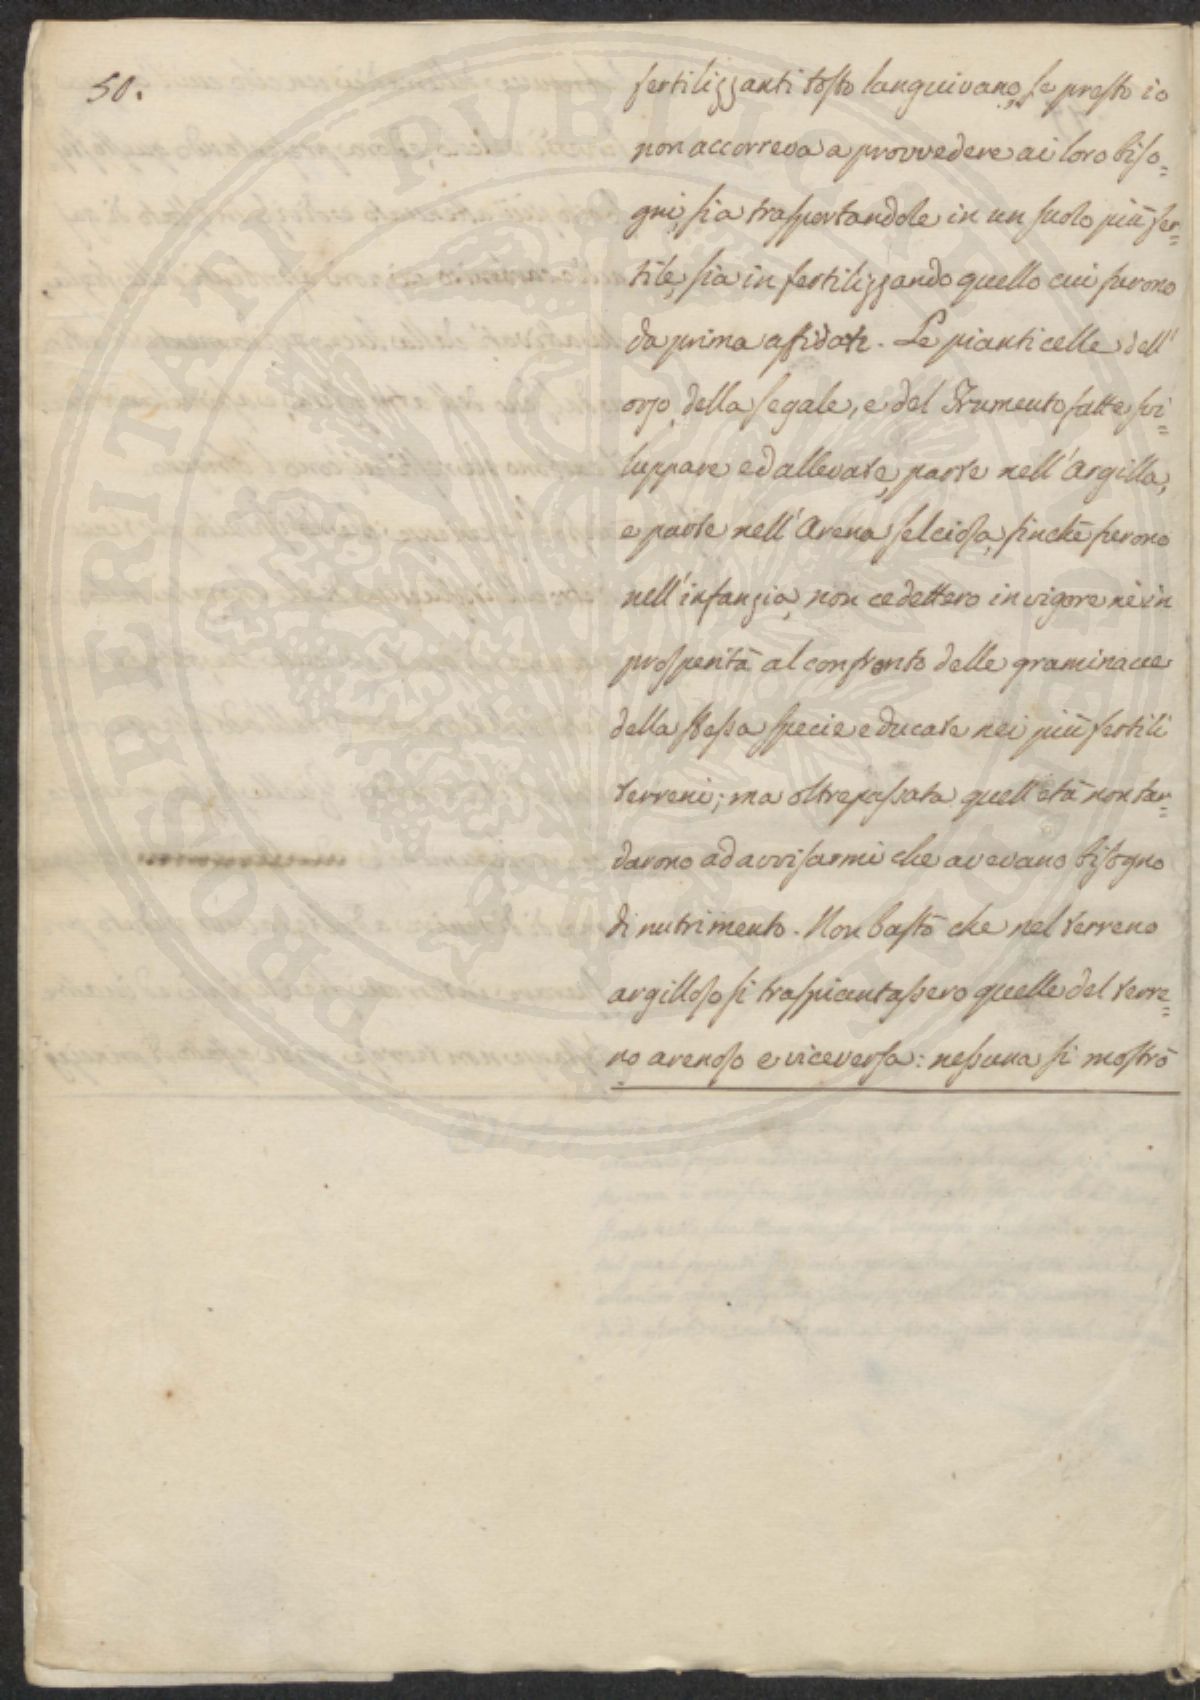 50.
fertilizzanti tosto languivano, se presto io
non accorreva a provvedere ai loro biso=
gni, sia trasportandole in un suolo più fer=
tile, sia in fertilizzando quello cui furono
da prima affidate. Le pianticelle dell'
orzo, della segale, e del Frumento fatte svi=
luppare ed allevate, parte nell'Argilla,
e parte nell'Arena selciosa, finchè furono
nell'infanzia, non cedettero in vigore nè in
prosperità al confronto delle graminacee
della stessa specie educate nei più fertili
terreni; ma oltrepassata quell'età non tar=
darono ad avvisarmi che avevano bisogno
di nutrimento. Non bastò che nel terreno
argilloso si traspiantassero quelle del terre=
no arenoso e viceversa: nessuna si mostrò
PROSPERITATI PUBLICAE